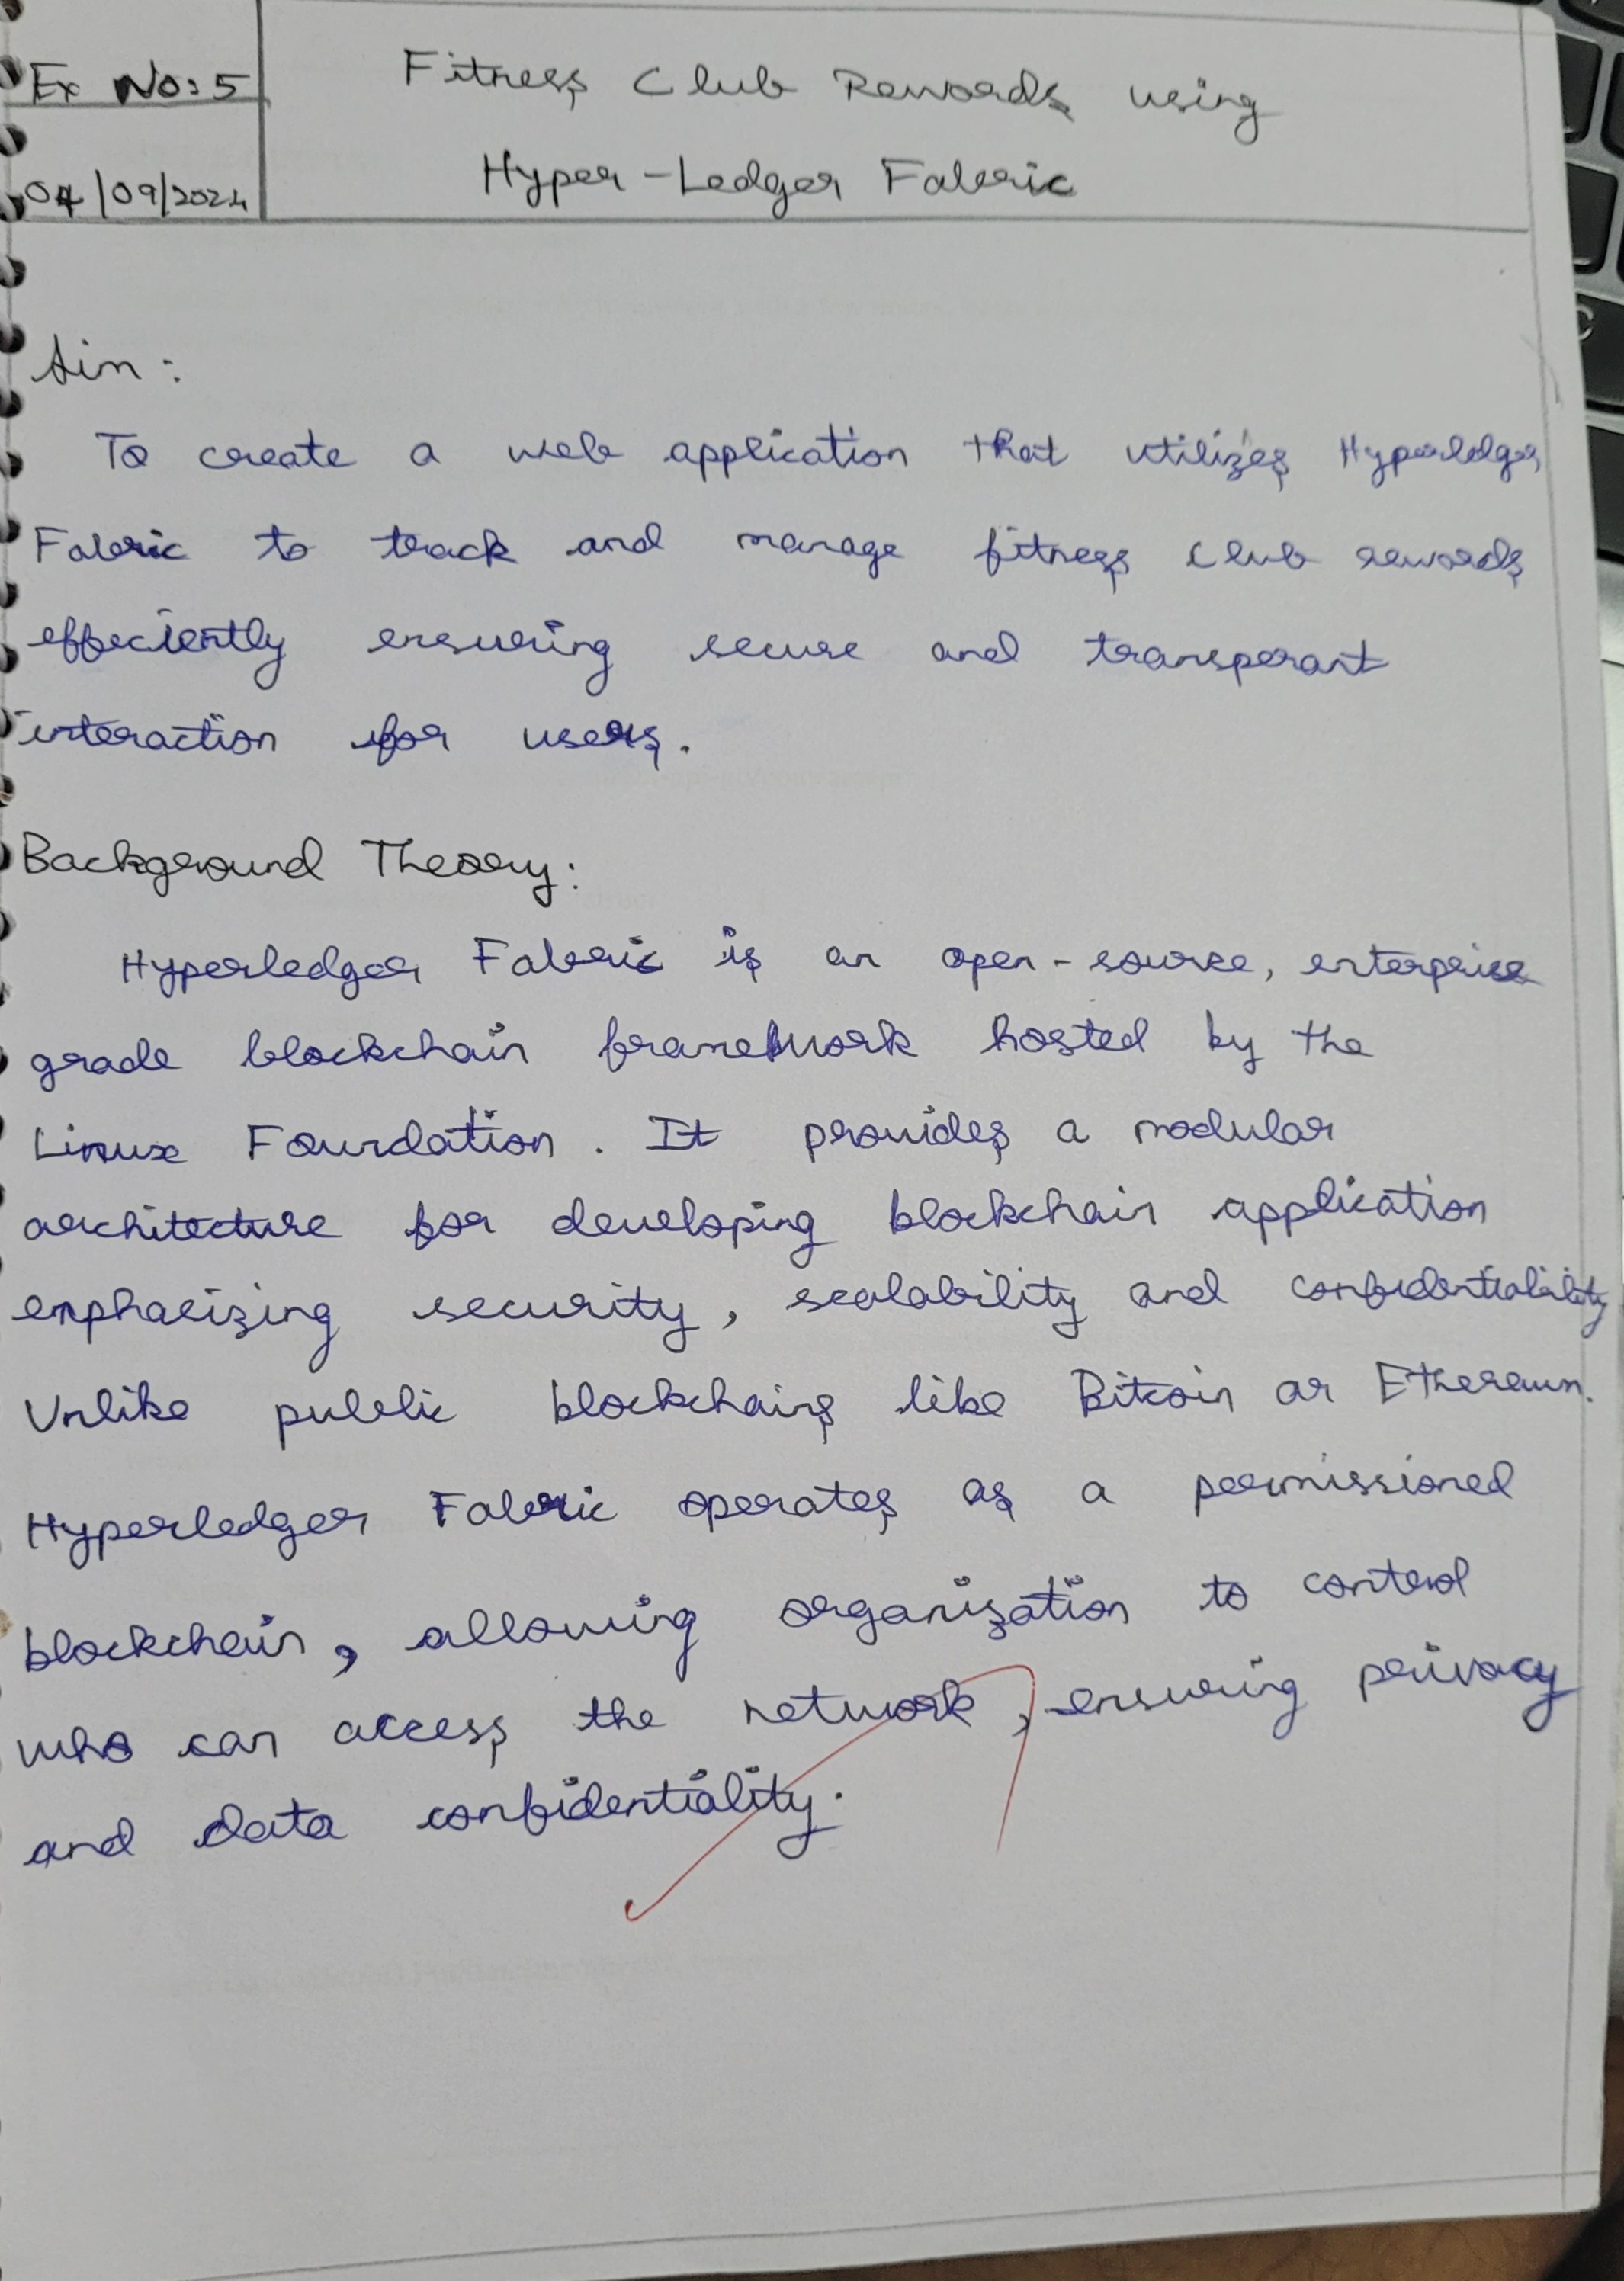 Ex No: 5
Fitness Club Rewards using
Hyper-Ledger Fabric
04/09/2024
Aim:
To create a web application that utilizes Hyperledger
Fabric to track and manage fitness club rewards
effeciently ensuring secure and transperant
interaction for users.
Background Theory:
Hyperledger Fabric is an open-source, enterprise
grade blockchain framework hosted by the
Linux Foundation. It provides a modular
architecture for developing blockchain application
emphasizing security, scalability and confidentiality
Unlike public blockchains like Bitcoin or Ethereum.
Hyperledger Fabric operates as a permissioned
blockchain, allowing organization to control
who can access the network, ensuring privacy
and data confidentiality.